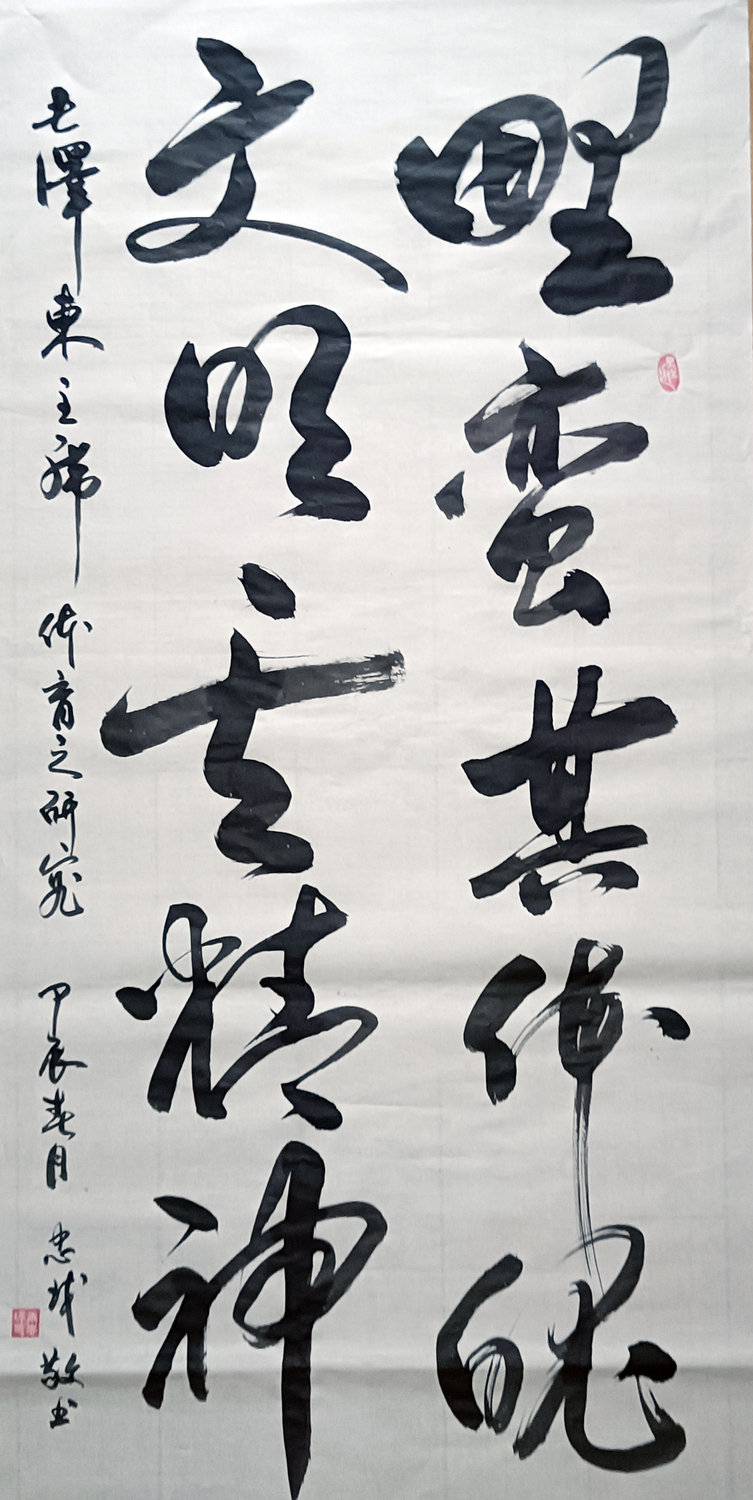 野蛮其体魄
文明其精神
毛澤東主席 体育之研究 甲辰春月 忠城 敬书